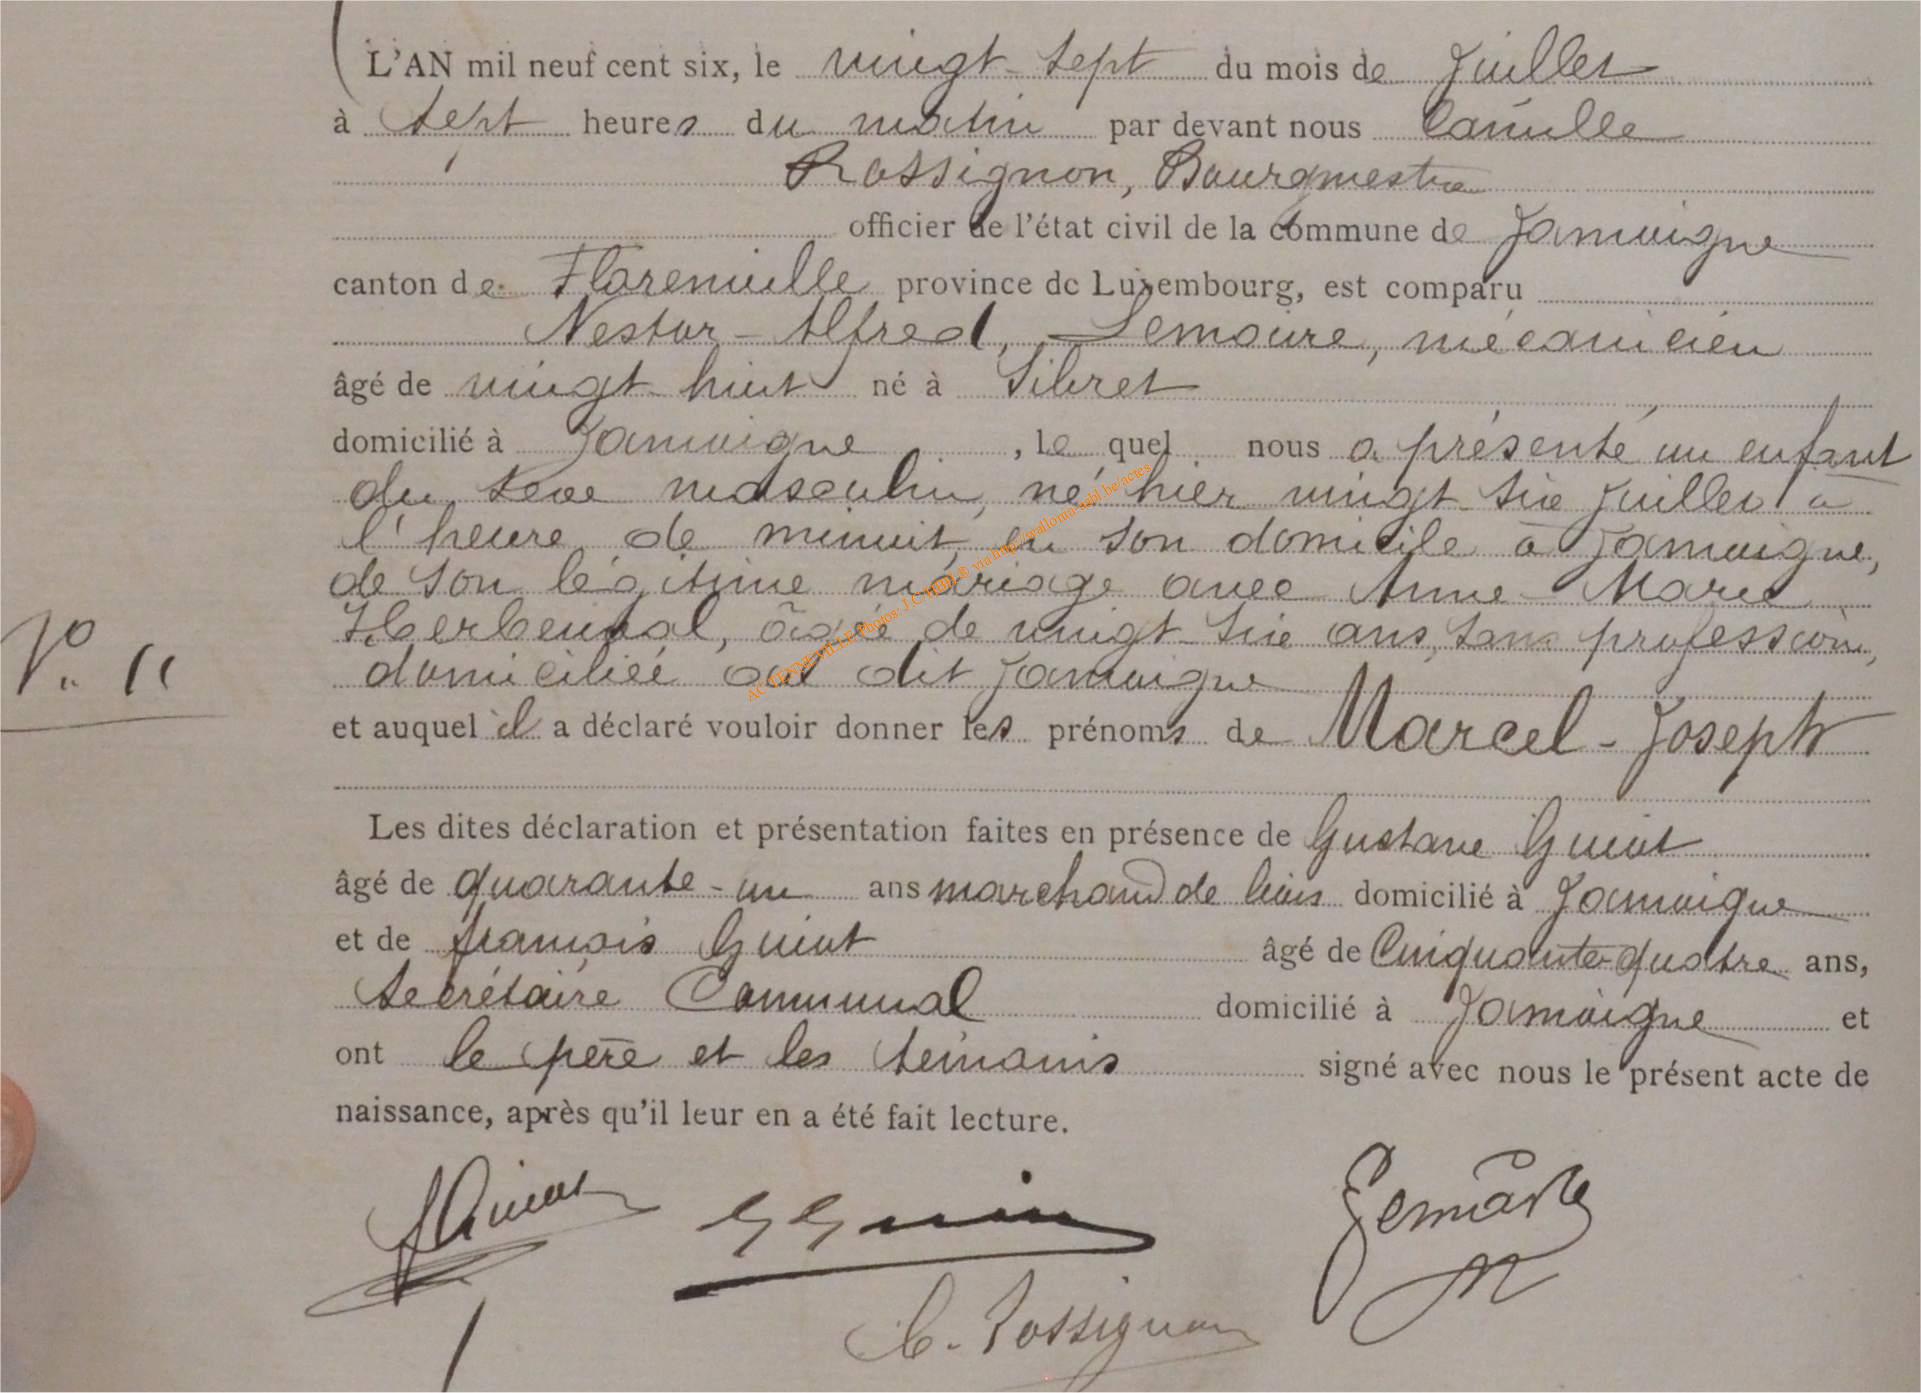 L'AN mil neuf cent six, le vingt-sept du mois de Juillet
à sept heures du matin par devant nous Camille
Rossignon, Bourgmestre
officier de l'état civil de la commune de Jamoigne
canton de Florenville province de Luxembourg, est comparu
Nestor-Alfred, Lemaire, mécanicien
âgé de vingt-huit né à Sibret
domicilié à Jamoigne, lequel nous a présenté un enfant
du sexe masculin, né hier vingt-six Juillet à
l'heure de minuit, en son domicile à Jamoigne,
de son légitime mariage avec Anne-Marie
Herbeuval, âgée de vingt-six ans, sans profession,
domiciliée au dit Jamoigne
No 11
et auquel il a déclaré vouloir donner les prénoms de Marcel-Joseph
Les dites déclaration et présentation faites en présence de Gustave Guiot
âgé de quarante-un ans marchand de bois domicilié à Jamoigne
et de françois Guiot âgé de Cinquante-quatre ans,
secrétaire Communal domicilié à Jamoigne et
ont le père et les témoins signé avec nous le présent acte de
naissance, après qu'il leur en a été fait lecture.
f Guiot G Guiot Lemaire
N
C. Rossignon